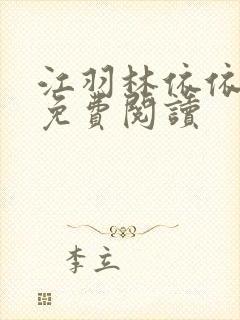 江羽林依依
免費閱讀
李立